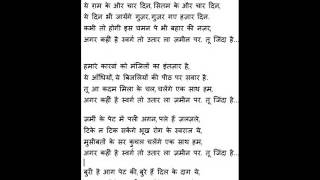 ये ग़म के और चार दिन, सितम के और चार दिन,
ये दिन भी जायेंगे गुज़र, गुज़र गए हज़ार दिन.
कभी तो होगी इस चमन पे भी बहार की नज़र,
अगर कहीं है स्वर्ग तो उतार ला ज़मीन पर, तू जिंदा है...
हमारे कारवां को मंजिलों का इंतज़ार है,
ये आँधियों, ये बिजलियों की पीठ पर सवार है.
तू आ कदम मिला के चल, चलेंगे एक साथ हम,
अगर कहीं है स्वर्ग तो उतार ला ज़मीन पर, तू जिंदा है...
ज़मी के पेट में पली अगन, पले हैं ज़लज़ले,
टिके न टिक सकेंगे भूख रोग के स्वराज ये,
मुसीबतों के सर कुचल चलेंगे एक साथ हम,
अगर कहीं है स्वर्ग तो उतार ला ज़मीन पर, तू जिंदा है...
बुरी है आग पेट की, बुरे हैं दिल के दाग ये,